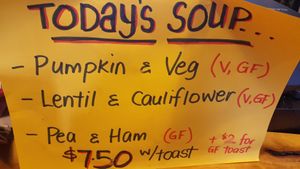 TODAY'S SOUP...
- Pumpkin & Veg (V, GF)
- Lentil & Cauliflower (V, GF)
- Pea & Ham (GF)
$7.50 w/toast + $2 for GF toast